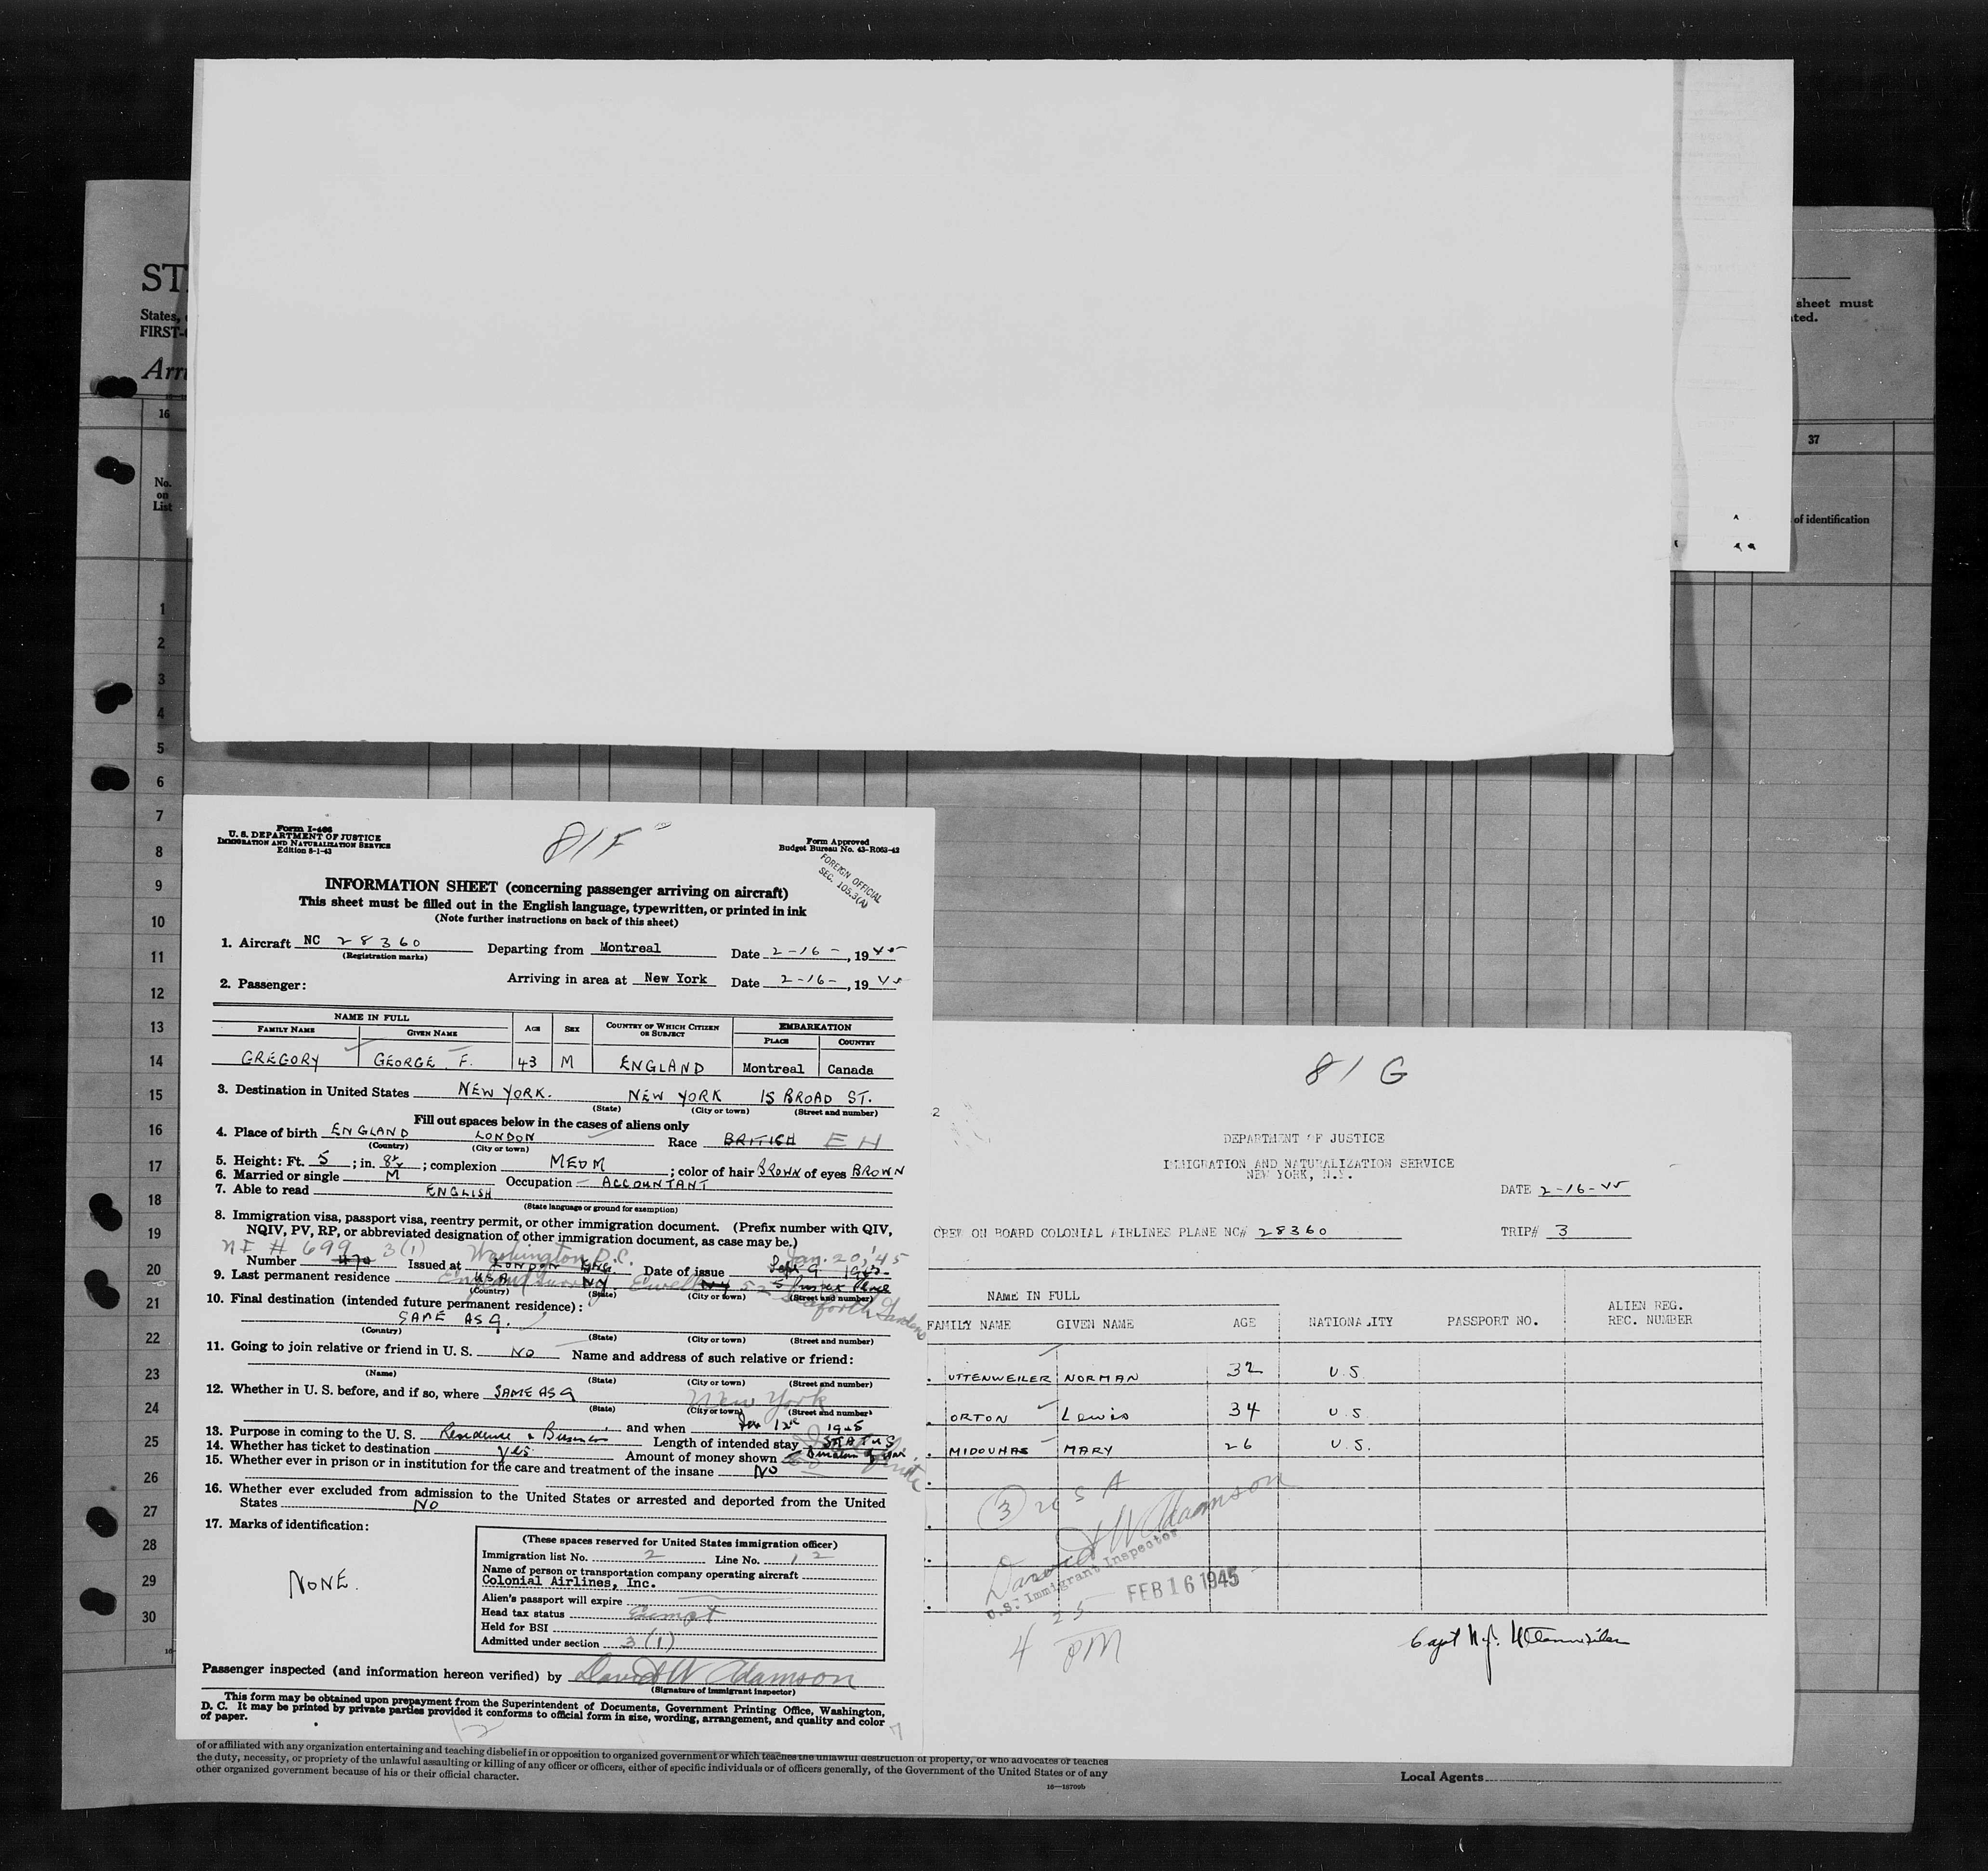 ST
States,
FIRST-
Arri
sheet must
ted.
16
37
No.
on
List
of identification
1
2
3
4
5
6
7
8
9
10
11
12
13
14
15
16
17
18
19
20
21
22
23
24
25
26
27
28
29
30
Form I-466
U. S. DEPARTMENT OF JUSTICE
IMMIGRATION AND NATURALIZATION SERVICE
Edition 8-1-43
81F
Form Approved
Budget Bureau No. 43-R063-42
FOREIGN OFFICIAL
SEC. 105.3(A)
INFORMATION SHEET (concerning passenger arriving on aircraft)
This sheet must be filled out in the English language, typewritten, or printed in ink
(Note further instructions on back of this sheet)
1. Aircraft NC 28360 Departing from Montreal Date 2-16-, 1945
(Registration marks)
Arriving in area at New York Date 2-16-, 1945
2. Passenger:
NAME IN FULL
FAMILY NAME GIVEN NAME AGE SEX COUNTRY OF WHICH CITIZEN OR SUBJECT EMBARKATION
PLACE COUNTRY
GREGORY GEORGE F. 43 M ENGLAND Montreal Canada
3. Destination in United States NEW YORK. NEW YORK 15 BROAD ST.
(State) (City or town) (Street and number)
Fill out spaces below in the cases of aliens only
4. Place of birth ENGLAND LONDON Race BRITISH EH
(Country) (City or town)
5. Height: Ft. 5; in. 8½; complexion MEDM; color of hair BROWN of eyes BROWN
6. Married or single M Occupation ACCOUNTANT
7. Able to read ENGLISH
(State language or ground for exemption)
8. Immigration visa, passport visa, reentry permit, or other immigration document. (Prefix number with QIV,
NQIV, PV, RP, or abbreviated designation of other immigration document, as case may be.)
# 699 3(1) Washington D.C. Jan. 20, '45
Number 470 Issued at LONDON ENG. Date of issue Sept 9
9. Last permanent residence USA NY England Surrey Ewell NY 52
(Country) (State) (City or town) (Street and number)
10. Final destination (intended future permanent residence):
SAME AS 9.
(Country) (State) (City or town) (Street and number)
11. Going to join relative or friend in U. S. NO Name and address of such relative or friend:
(Name) (State) (City or town) (Street and number)
12. Whether in U. S. before, and if so, where SAME AS 9 New York
(State) (City or town) (Street and number)
13. Purpose in coming to the U. S. Residence & Business and when Jan 12th 1945
Length of intended stay STATUS
14. Whether has ticket to destination Yes Amount of money shown
15. Whether ever in prison or in institution for the care and treatment of the insane NO
16. Whether ever excluded from admission to the United States or arrested and deported from the United
States NO
17. Marks of identification:
NONE.
(These spaces reserved for United States immigration officer)
Immigration list No. 2 Line No. 12
Name of person or transportation company operating aircraft
Colonial Airlines, Inc.
Alien's passport will expire
Head tax status Exempt
Held for BSI
Admitted under section 3(1)
Passenger inspected (and information hereon verified) by David W Adamson
(Signature of immigrant inspector)
This form may be obtained upon prepayment from the Superintendent of Documents, Government Printing Office, Washington,
D. C. It may be printed by private parties provided it conforms to official form in size, wording, arrangement, and quality and color
of paper.
81G
2
DEPARTMENT OF JUSTICE
IMMIGRATION AND NATURALIZATION SERVICE
NEW YORK, N.Y.
DATE 2-16-45
CREW ON BOARD COLONIAL AIRLINES PLANE NC# 28360 TRIP# 3
NAME IN FULL
FAMILY NAME GIVEN NAME AGE NATIONALITY PASSPORT NO. ALIEN REG. REC. NUMBER
UTTENWEILER NORMAN 32 U.S
ORTON Lewis 34 U.S
MIDOUHAS MARY 26 U.S.
(3) USA
David W Adamson
U.S. Immigrant Inspector
FEB 16 1945
Capt N.J. Uttenweiler
of or affiliated with any organization entertaining and teaching disbelief in or opposition to organized government or which teaches the unlawful destruction of property, or who advocates or teaches
the duty, necessity, or propriety of the unlawful assaulting or killing of any officer or officers, either of specific individuals or of officers generally, of the Government of the United States or of any
other organized government because of his or their official character.
16—18700b
Local Agents